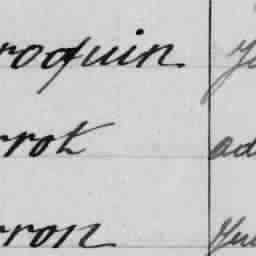 roquin
rrot
ad
rron